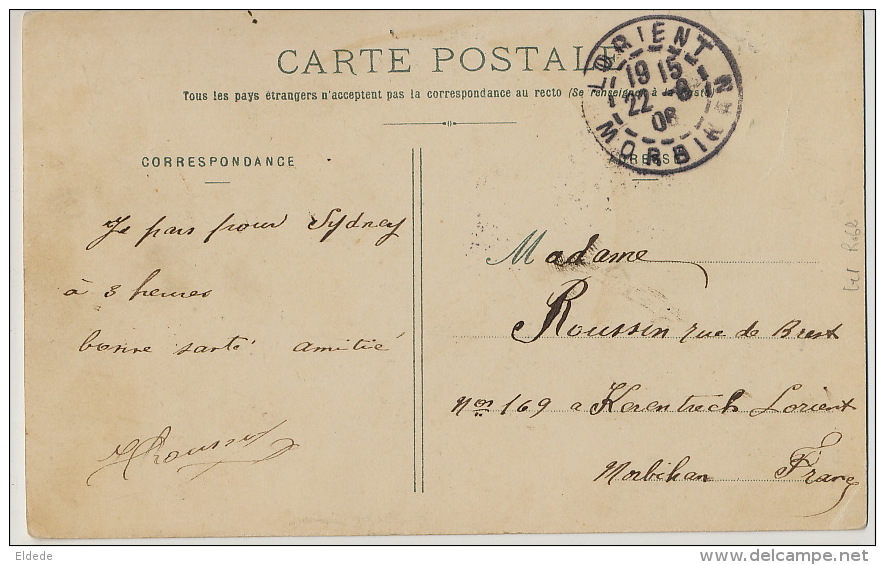 CARTE POSTALE
Tous les pays étrangers n'acceptent pas la correspondance au recto (Se renseigner à la Poste)
LORIENT
19 15
22 -8
08
MORBIHAN
CORRESPONDANCE
ADRESSE
Je pars pour Sydney
à 3 heures
bonne santé amitié
Roussin
Madame
Roussin rue de Brest
Nos 169 a Kerentrech Lorient
Morbihan France
Eldede
www.delcampe.net